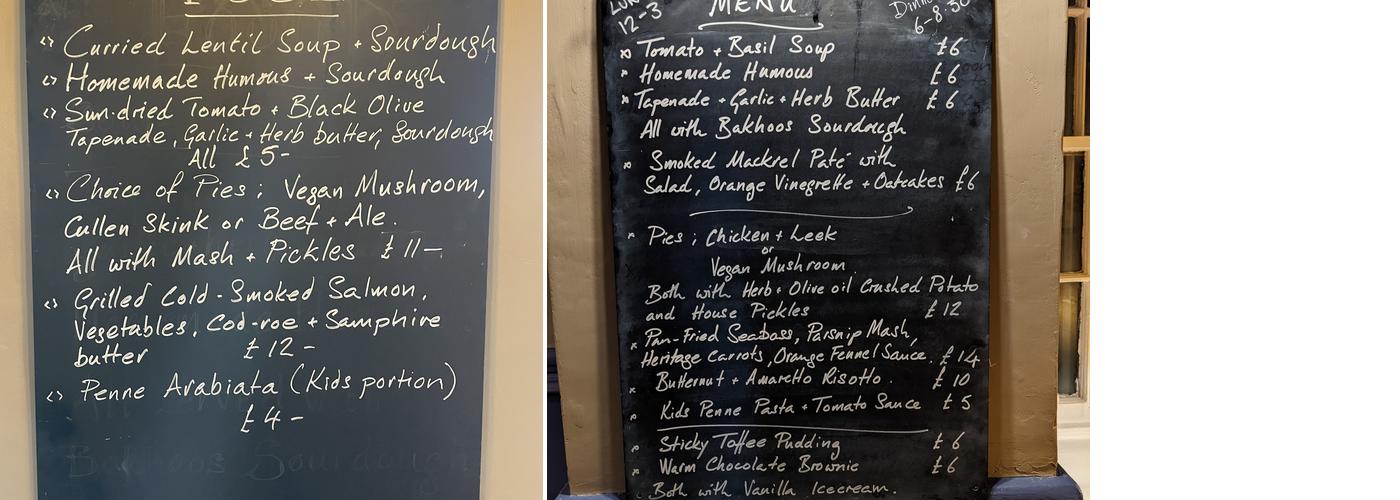 Curried Lentil Soup + Sourdough
Homemade Humous + Sourdough
Sun-dried Tomato + Black Olive
Tapenade, Garlic + Herb butter, Sourdough
All £5-
Choice of Pies; Vegan Mushroom,
Cullen Skink or Beef + Ale.
All with Mash + Pickles £11-
Grilled Cold-Smoked Salmon,
Vegetables, Cod-roe + Samphire
butter £12-
Penne Arabiata (Kids portion)
£4-
Bakhoos Sourdough
12-3 MENU 6-8.30
Tomato + Basil Soup £6
Homemade Humous £6
Tapenade + Garlic + Herb Butter £6
All with Bakhoos Sourdough
Smoked Mackrel Paté with
Salad, Orange Vinegrette + Oatcakes £6
Pies; Chicken + Leek
or
Vegan Mushroom.
Both with Herb + Olive oil Crushed Potato
and House Pickles £12
Pan-Fried Seabass, Parsnip Mash,
Heritage Carrots, Orange Fennel Sauce. £14
Butternut + Amaretto Risotto. £10
Kids Penne Pasta + Tomato Sauce £5
Sticky Toffee Pudding £6
Warm Chocolate Brownie £6
Both with Vanilla Icecream.